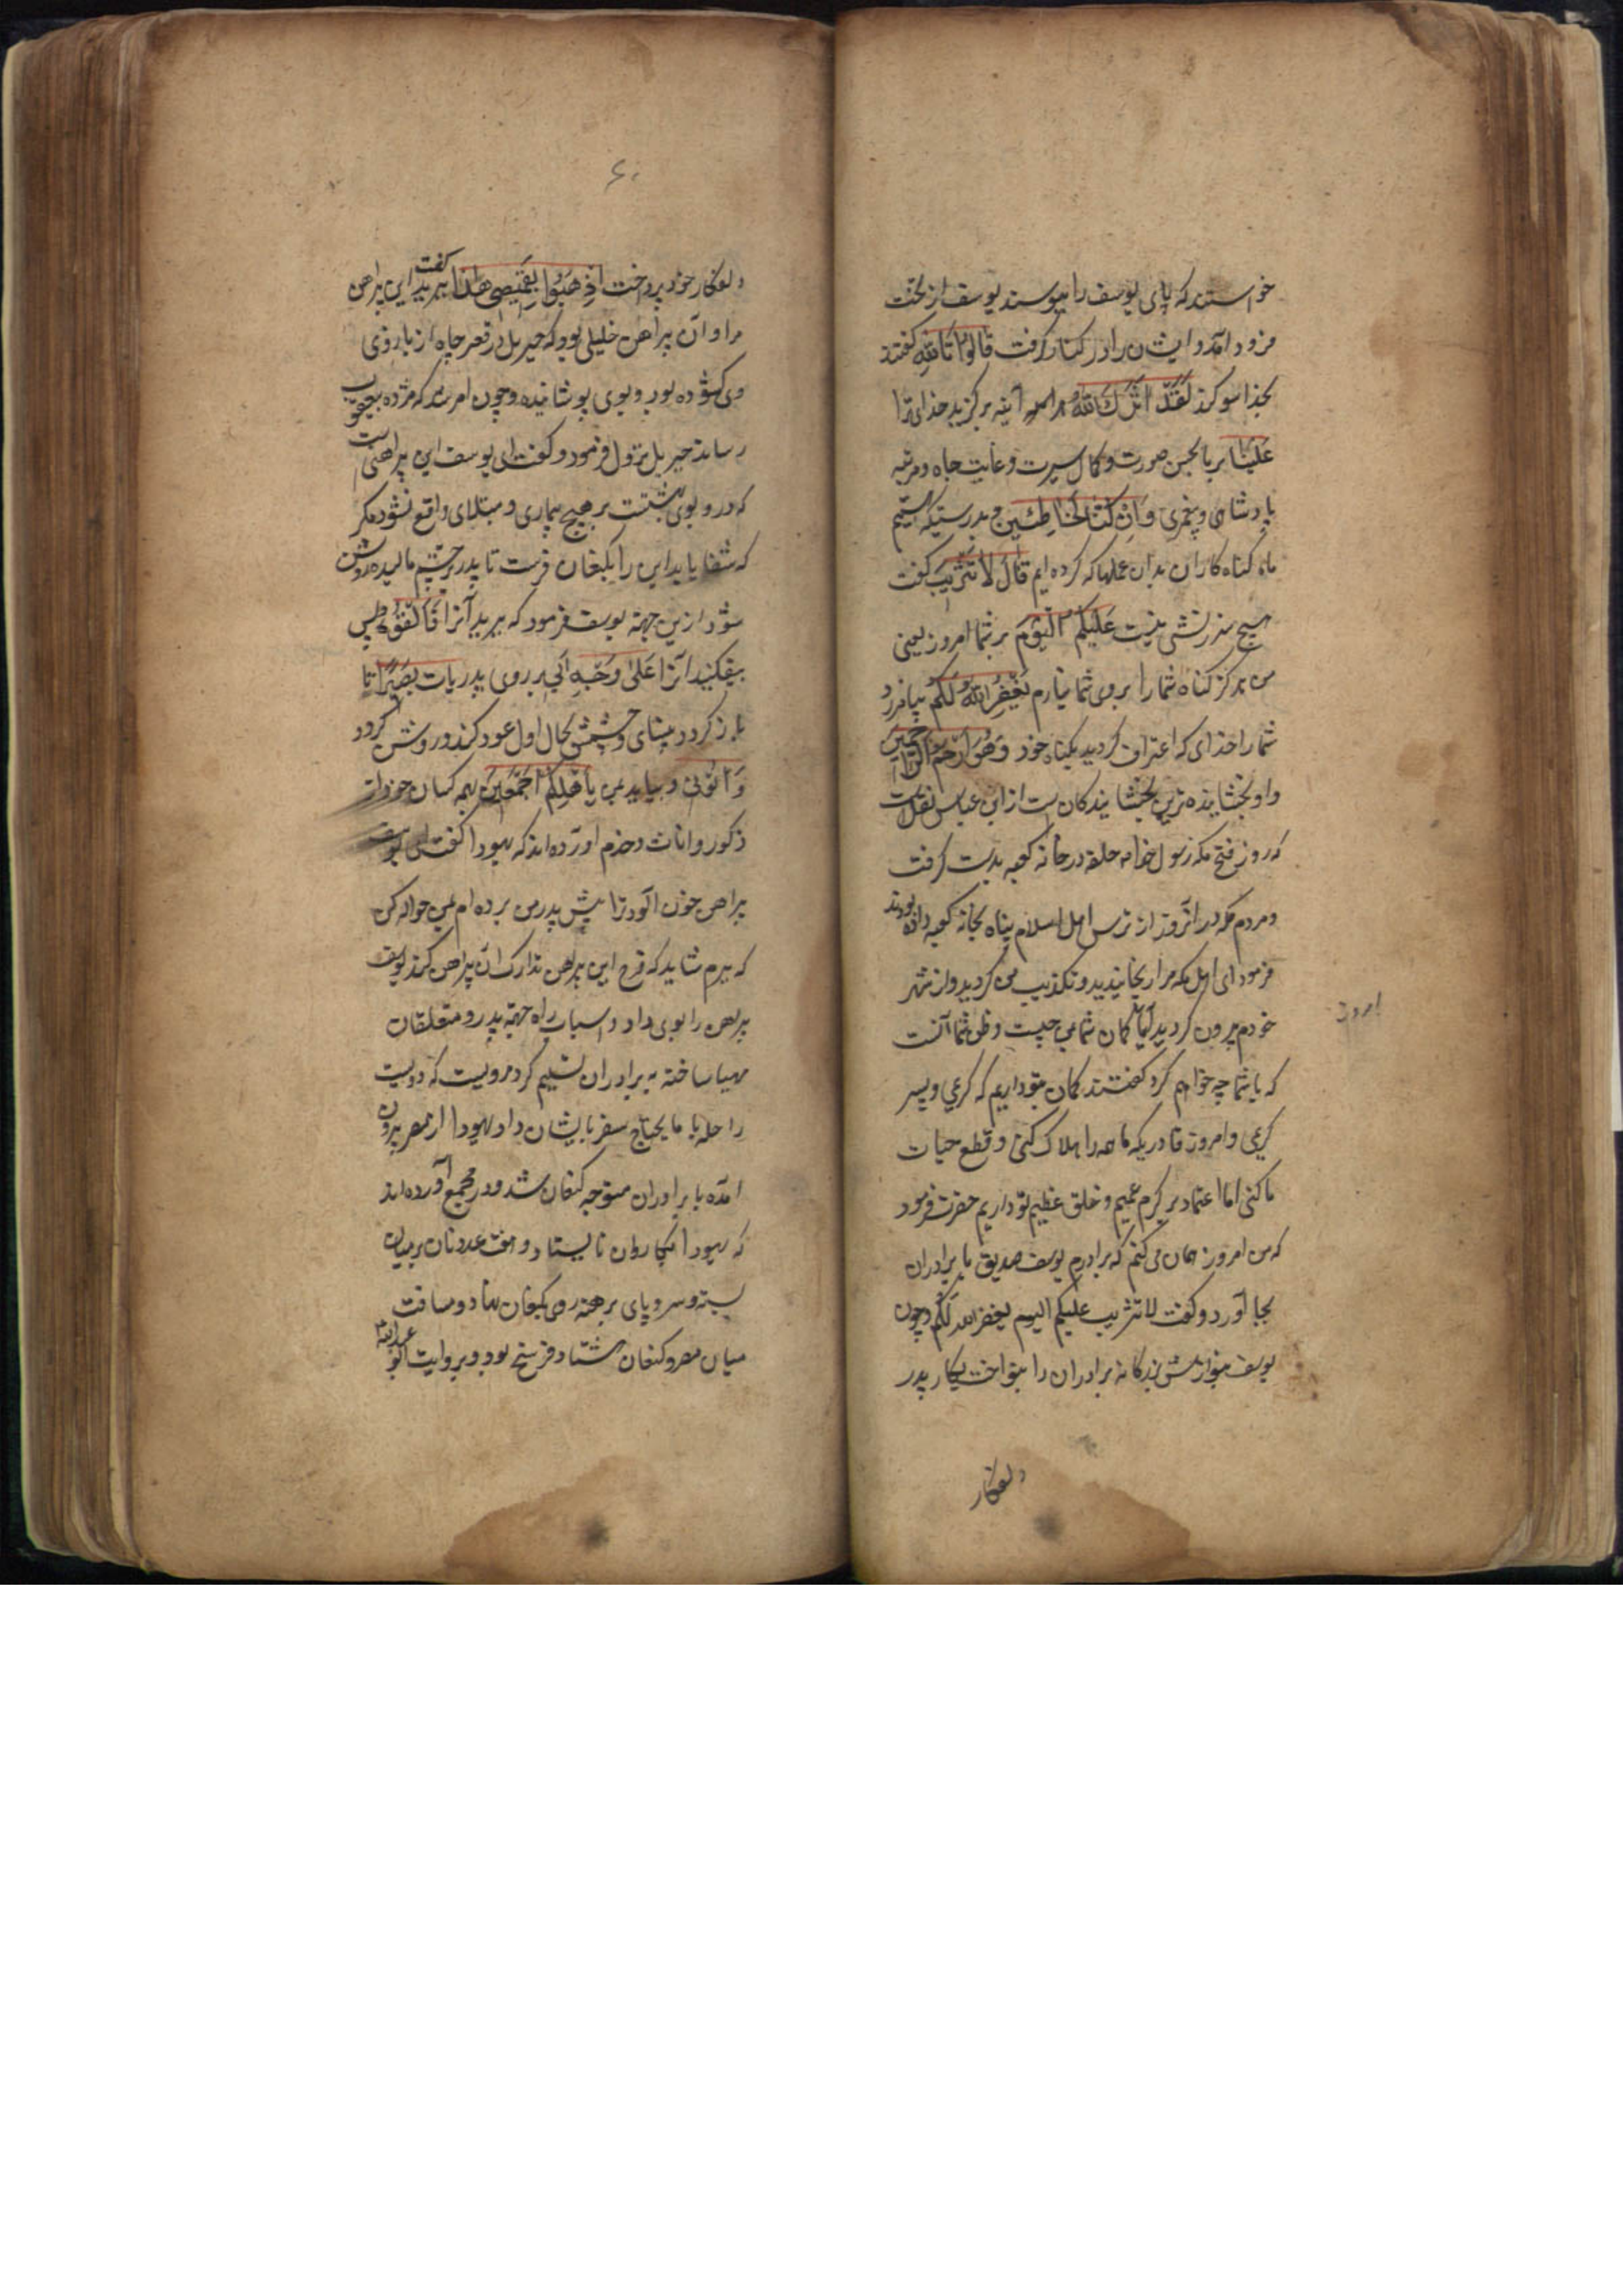 خواستند که پای یوسف را ببوسند یوسف از تخت
فرود آمد و ایشان را در کنار گرفت قَالُوا تَاللهِ گفتند
بخدا سوگند لَقَدْ اٰثَرَكَ اللهُ هر آینه برگزید خدای ترا
عَلَیْنَا بر ما بحسن صورت و کمال سیرت و غایت جاه و مرتبه
پادشاهی و پیغمبری وَاِنْ كُنَّا لَخَاطِئِینَ و بدرستیکه هستیم
ما گناه کاران بدان عملها که کرده ایم قَالَ لَا تَثْرِیبَ گفت
هیچ سرزنشی نیست عَلَیْکُمُ الْیَوْمَ بر شما امروز یعنی
من هرگز گناه شما را بروی شما نیارم یَغْفِرُ اللهُ لَکُمْ بیامرزد
شما را خدای که اعتراف کردید بگناه خود وَهُوَ اَرْحَمُ الرَّاحِمِینَ
و او بخشاینده ترین بخشایندگان است از ابن عباس نقلست
که روز فتح مکه رسول خدا حلقه در خانه کعبه بدست گرفت
و مردم مکه در آنروز از ترس اهل اسلام پناه بخانه کعبه داده بودند
فرمود ای اهل مکه مرا رنجانیدید و تکذیب من کردید و از شهر
خودم بیرون کردید آیا گمان شما بمن چیست و ظن شما آنست
که با شما چه خواهم کرد گفتند گمان بتو داریم که کریمی و پسر
کریمی و امروز قادری که ما همه را هلاک کنی و قطع حیات
ما کنی اما اعتماد بر کرم عمیم و خلق عظیم تو داریم حضرت فرمود
که من امروز همان می کنم که برادرم یوسف صدیق با برادران
بجا آورد و گفت لا تثریب علیکم الیوم یغفر الله لکم و چون
یوسف بنوازش بزرگانه برادران را بنواخت بکار پدر
دلفکار
امروز
۶۰
دلفکار خود پرداخت اِذْهَبُوا بِقَمِیصِی هٰذَا گفت ببرید این پیراهن
مرا و آن پیراهن خلیلی بود که جبریل در قعر چاه از بازوی
وی کشوده بود و بوی پوشانیده و چون امر شد که مژده بیعقوب
رساند جبریل نزول فرمود و گفت ای یوسف این پیراهنی است
که در و بوی بهشتست بر هیچ بیماری و مبتلای واقع نشود مگر
که شفا یابد این را بکنعان فرست تا پدر بر چشم مالیده روشن
شود ازین جهة یوسف فرمود که ببرید آنرا فَاَلْقُوهُ پس
بیفکنید آنرا عَلٰی وَجْهِ اَبِی بر روی پدر یَاْتِ بَصِیرًا تا
باز گردد بینای و چشمش بحال اول عود کند و روشن گردد
وَاْتُونِی و بیاید بمن بِاَهْلِکُمْ اَجْمَعِینَ بهمه کسان خود از
ذکور و اناث و خدم آورده اند که یهودا گفت ای یوسف
پیراهن خون آلود ترا پیش پدر من برده ام بمن حواله کن
که ببرم شاید که فرح این پیراهن تدارک آن پیراهن کند یوسف
پیراهن را بوی داد و اسباب راه جهة پدر و متعلقان
مهیا ساخته به برادران تسلیم کرد مرویست که دویست
راحله با ما یحتاج سفر بایشان داد یهودا از مصر بیرون
آمده با برادران متوجه کنعان شد و در مجمع آورده اند
که یهودا بکاروان نایستاد و هفت عدد نان بر میان
بسته و سر و پای برهنه روی بکنعان نهاد و مسافت
میان مصر و کنعان هشتاد فرسخ بود و بروایت ابو عبدالله